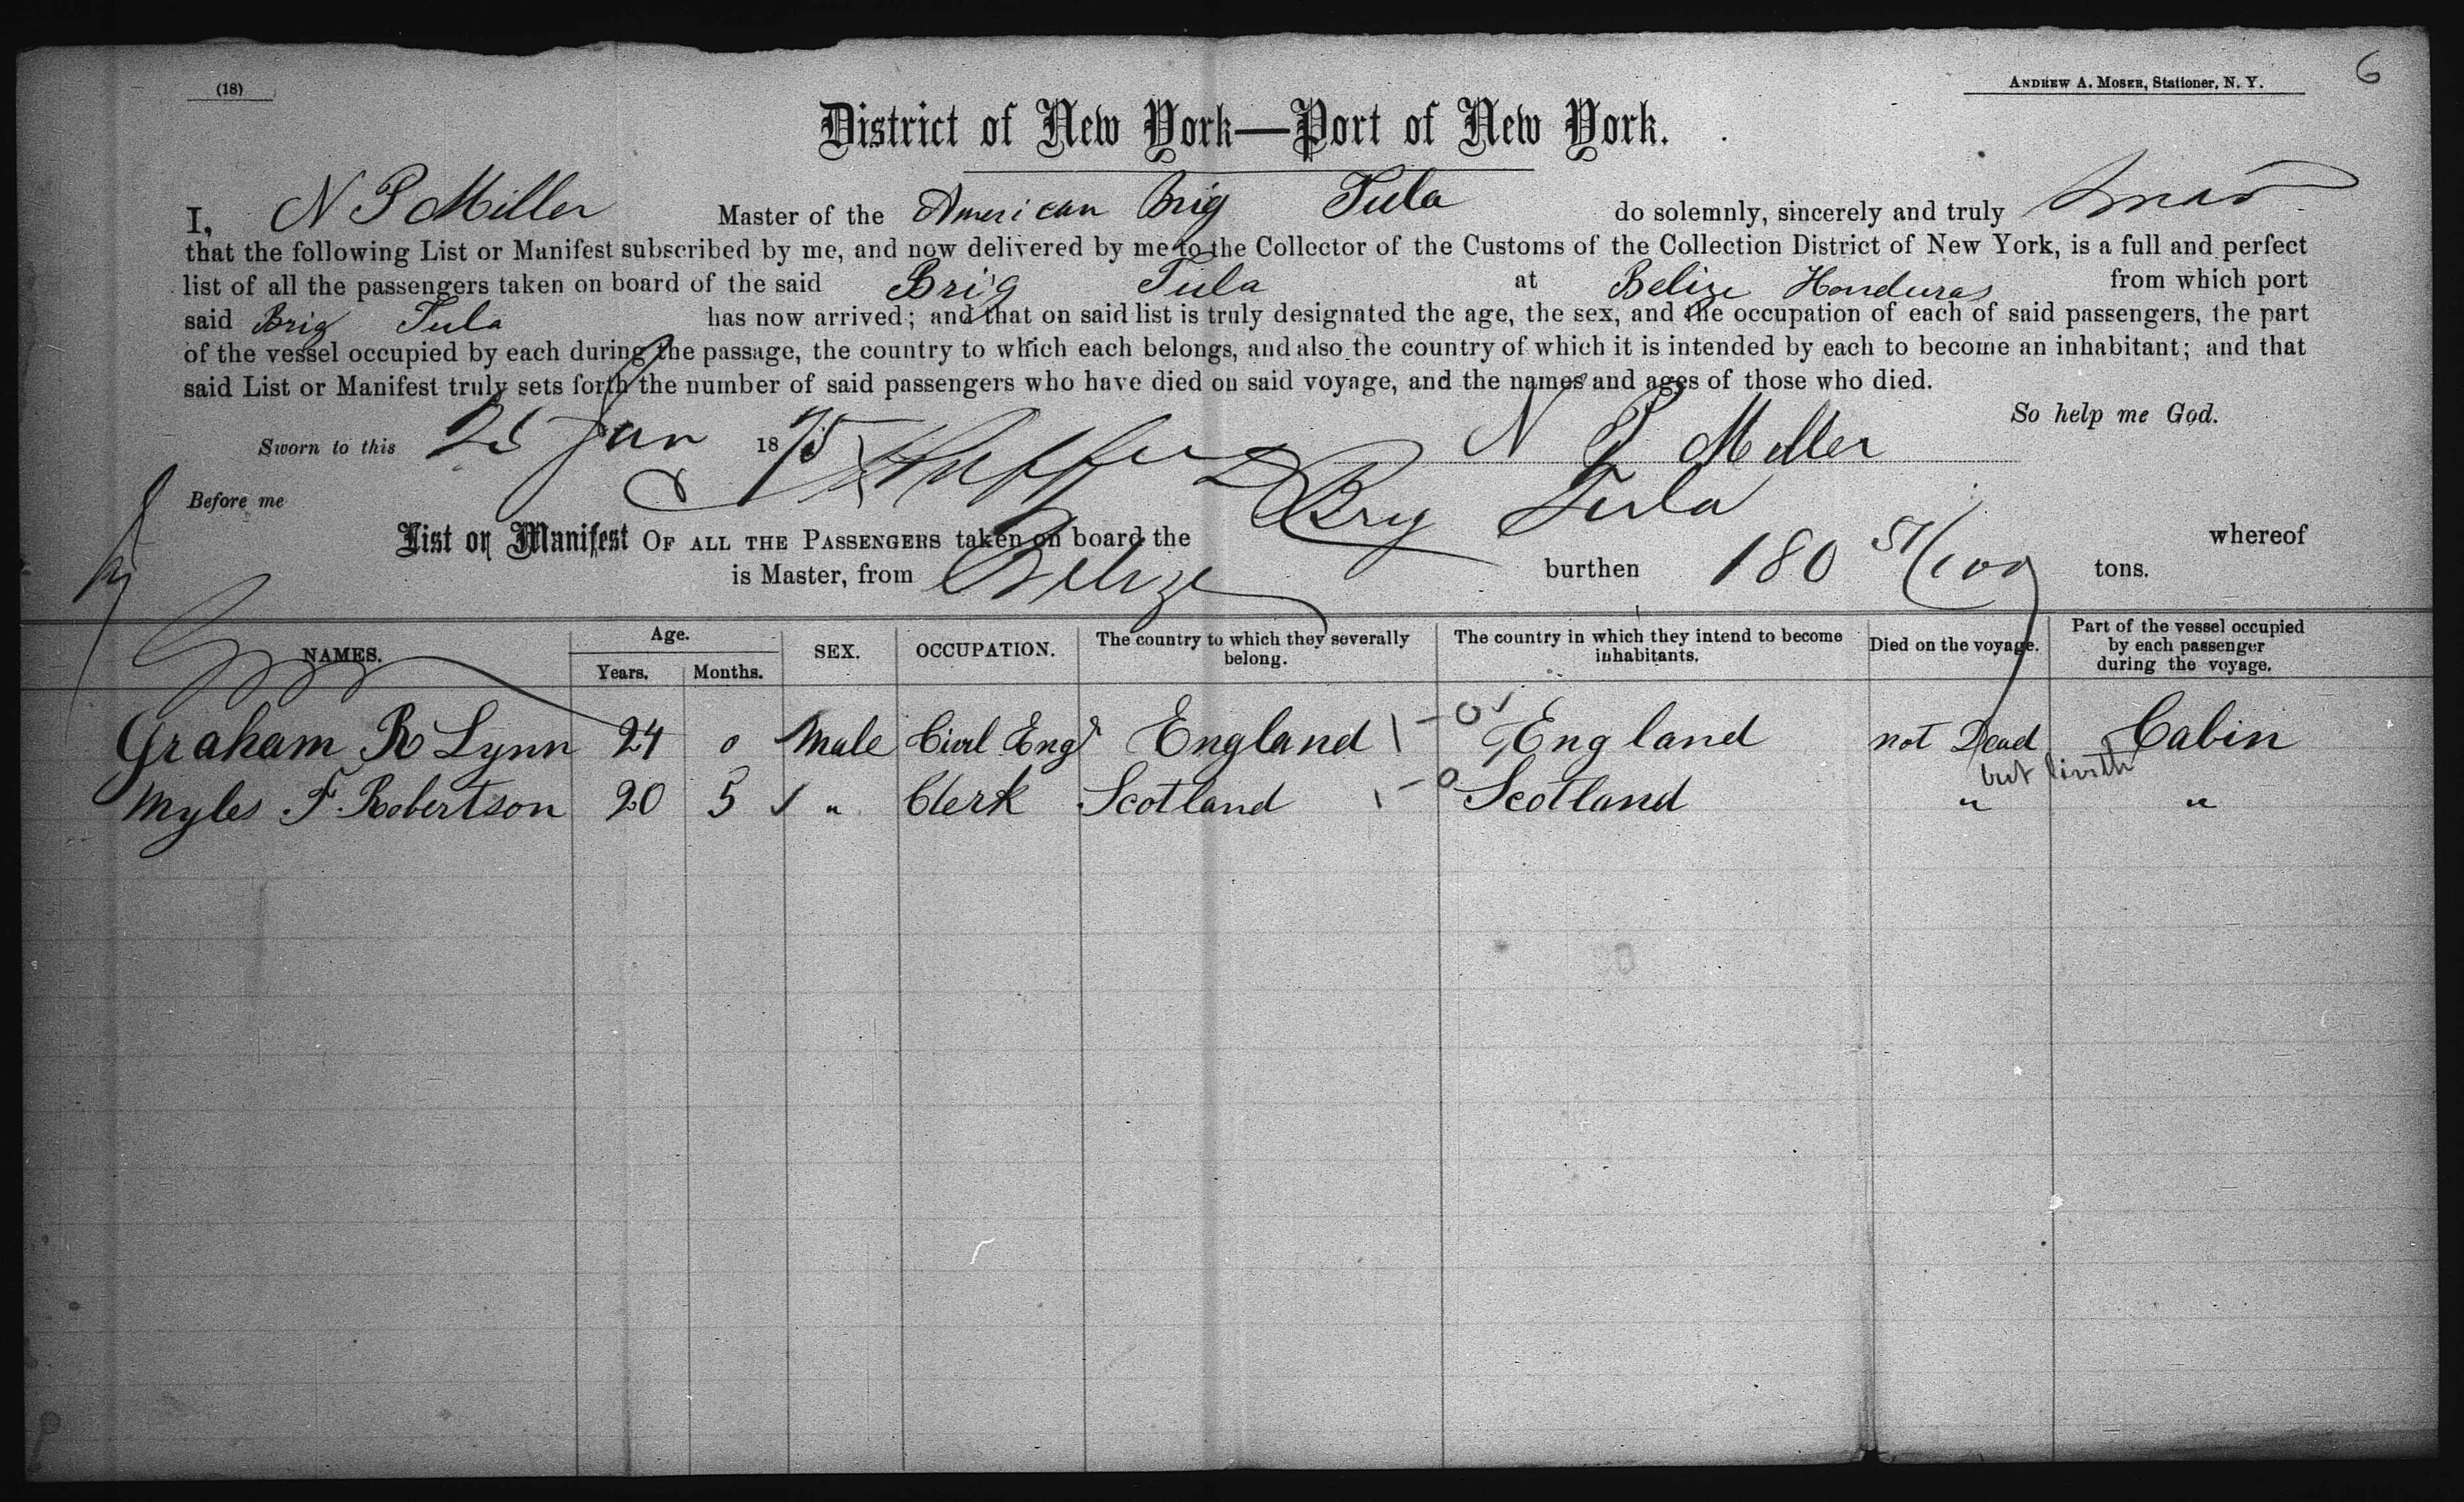 (18)
ANDREW A. MOSER, Stationer, N. Y.
6
District of New York—Port of New York.
I, N P Miller Master of the American Brig Tula do solemnly, sincerely and truly swear
that the following List or Manifest subscribed by me, and now delivered by me to the Collector of the Customs of the Collection District of New York, is a full and perfect
list of all the passengers taken on board of the said Brig Tula at Belize Honduras from which port
said Brig Tula has now arrived; and that on said list is truly designated the age, the sex, and the occupation of each of said passengers, the part
of the vessel occupied by each during the passage, the country to which each belongs, and also the country of which it is intended by each to become an inhabitant; and that
said List or Manifest truly sets forth the number of said passengers who have died on said voyage, and the names and ages of those who died.
So help me God.
Sworn to this 25 Jan 1875 N P Miller
Before me
List or Manifest OF ALL THE PASSENGERS taken on board the Brig Tula whereof
is Master, from Belize burthen 180 51/100 tons.
NAMES. Age. Years. Months. SEX. OCCUPATION. The country to which they severally belong. The country in which they intend to become inhabitants. Died on the voyage. Part of the vessel occupied by each passenger during the voyage.
Graham R Lynn 24 0 Male Civil Engr England 1-0 England not Dead Cabin
but liveth
Myles F. Robertson 20 5 " Clerk Scotland 1-0 Scotland " "